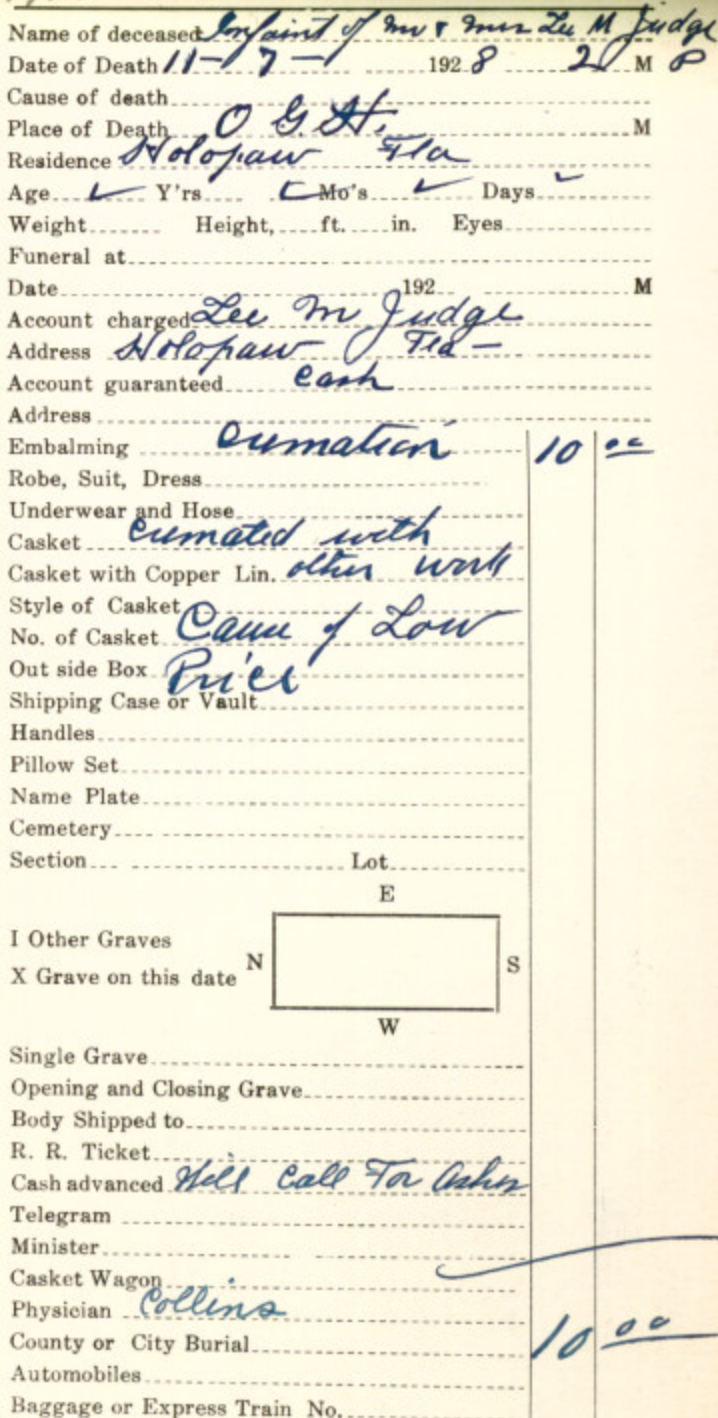 Name of deceased Infaint of Mr & Mrs Lee M Judge
Date of Death 11-7- 1928 2 M P
Cause of death
Place of Death O. G. H. M
Residence Holopaw Fla
Age ✓ Y'rs ✓ Mo's ✓ Days ✓
Weight Height, ft. in. Eyes
Funeral at
Date 192 M
Account charged Lee M Judge
Address Holopaw Fla -
Account guaranteed Cash
Address
Embalming Cremation 10 00
Robe, Suit, Dress
Underwear and Hose
Casket Cremated with
Casket with Copper Lin. other work
Style of Casket
No. of Casket Cause of Low
Out side Box Price
Shipping Case or Vault
Handles
Pillow Set
Name Plate
Cemetery
Section Lot
E
I Other Graves
N S
X Grave on this date
W
Single Grave
Opening and Closing Grave
Body Shipped to
R. R. Ticket
Cash advanced Will Call For Ashes
Telegram
Minister
Casket Wagon
Physician Collins
County or City Burial 10 00
Automobiles
Baggage or Express Train No.